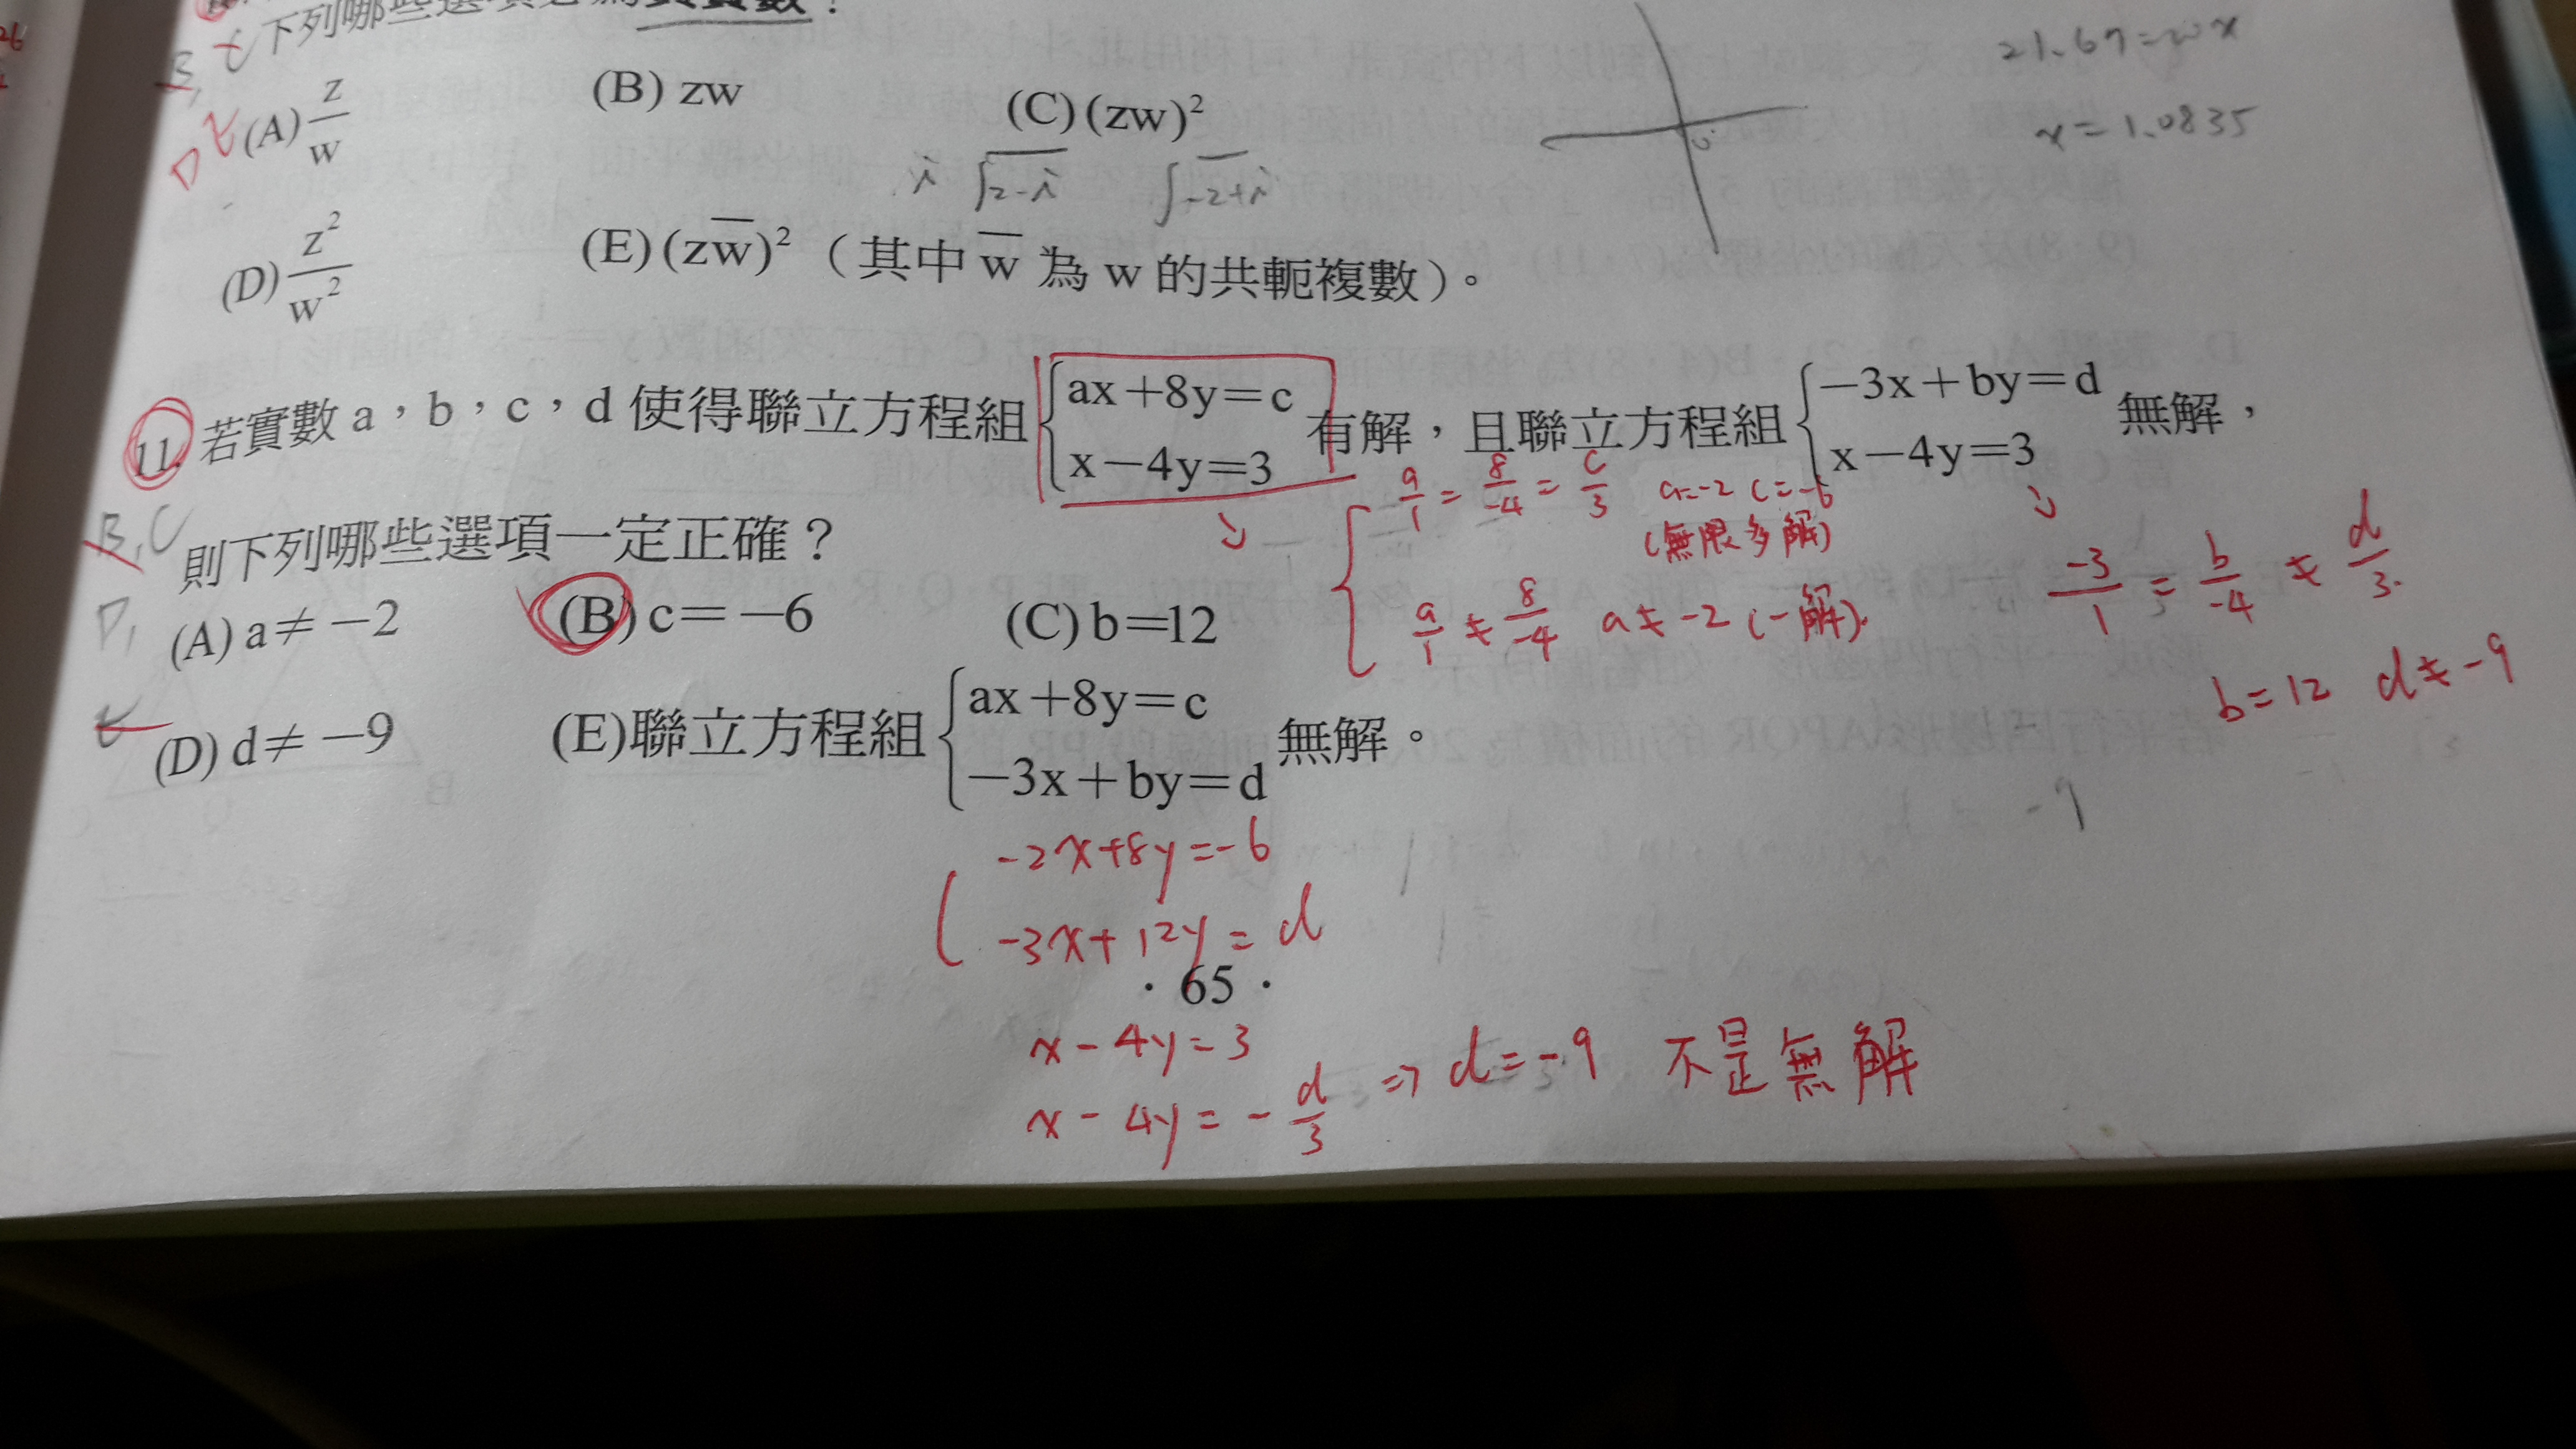 下列哪些選項必為
B, E
D E
(A) z/w (B) zw (C) (zw)²
21.67=20x
x=1.0835
i √2-i √-2+i
(D) z²/w² (E) (zw̅)² （其中 w̅ 為 w 的共軛複數）。
11. 若實數 a，b，c，d 使得聯立方程組 { ax+8y=c 有解，且聯立方程組 { -3x+by=d 無解，
x-4y=3 x-4y=3
則下列哪些選項一定正確？
B, C
D,
E
(A) a≠-2 (B) c=-6 (C) b=12
(D) d≠-9 (E)聯立方程組 { ax+8y=c 無解。
-3x+by=d
a/1 = 8/-4 = c/3 a=-2 c=-6
(無限多解)
a/1 ≠ 8/-4 a≠-2 (一解).
-3/1 = b/-4 ≠ d/3.
b=12 d≠-9
-2x+8y=-6
-3x+12y=d
· 65 ·
x-4y=3
x-4y=-d/3 ⇒ d=-9 不是無解